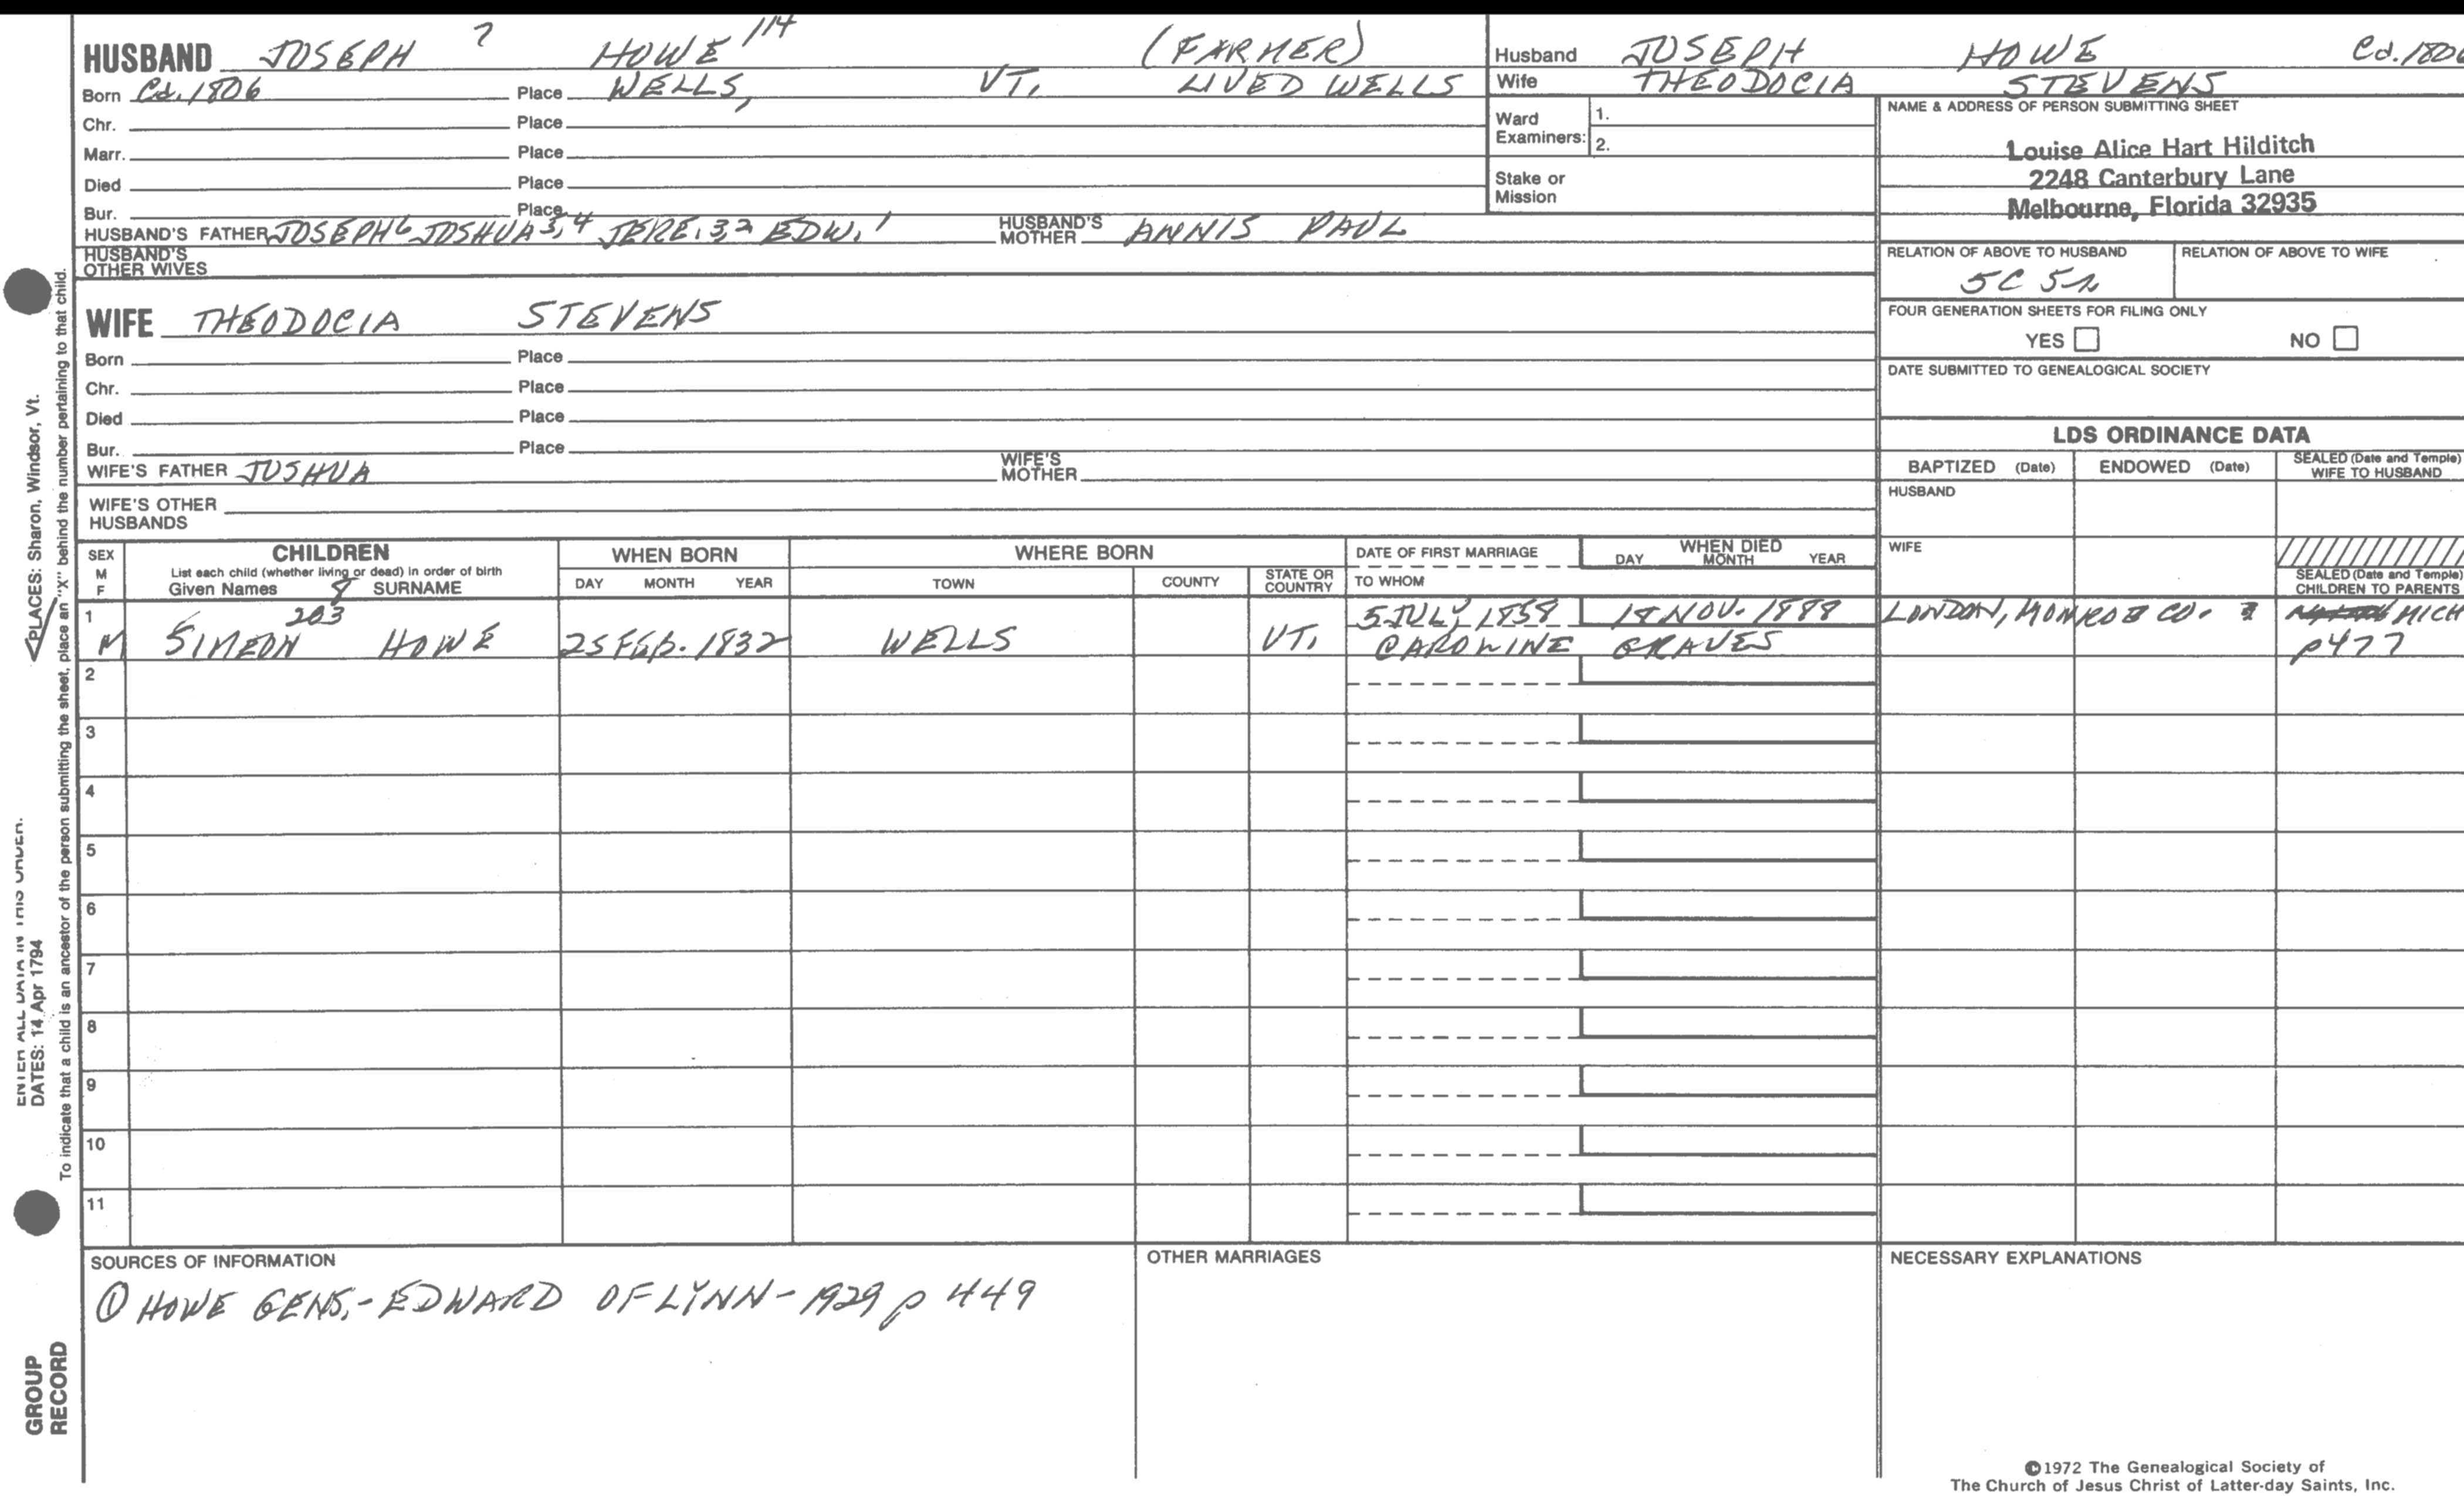 HUSBAND JOSEPH 7 HOWE 114 (FARMER)
Born Ca. 1806 Place WELLS, VT. LIVED WELLS
Chr. Place
Marr. Place
Died Place
Bur. Place
HUSBAND'S FATHER JOSEPH6 JOSHUA5,4 JERE.3,2 EDW.1 HUSBAND'S MOTHER ANNIS PAUL
HUSBAND'S OTHER WIVES
WIFE THEODOCIA STEVENS
Born Place
Chr. Place
Died Place
Bur. Place
WIFE'S FATHER JOSHUA WIFE'S MOTHER
WIFE'S OTHER HUSBANDS
Husband JOSEPH HOWE Ca. 1806
Wife THEODOCIA STEVENS
Ward Examiners: 1.
2.
Stake or Mission
NAME & ADDRESS OF PERSON SUBMITTING SHEET
Louise Alice Hart Hilditch
2248 Canterbury Lane
Melbourne, Florida 32935
RELATION OF ABOVE TO HUSBAND RELATION OF ABOVE TO WIFE
5C 5R
FOUR GENERATION SHEETS FOR FILING ONLY
YES NO
DATE SUBMITTED TO GENEALOGICAL SOCIETY
LDS ORDINANCE DATA
BAPTIZED (Date) ENDOWED (Date) SEALED (Date and Temple) WIFE TO HUSBAND
HUSBAND
WIFE
SEALED (Date and Temple) CHILDREN TO PARENTS
SEX M F
CHILDREN
List each child (whether living or dead) in order of birth
Given Names 8 SURNAME
WHEN BORN
DAY MONTH YEAR
WHERE BORN
TOWN COUNTY STATE OR COUNTRY
DATE OF FIRST MARRIAGE
TO WHOM
WHEN DIED
DAY MONTH YEAR
1 203 5 JULY 1858 18 NOV. 1888 LONDON, MONROE CO. MICH
M SIMEON HOWE 25 FEB. 1832 WELLS VT. CAROLINE GRAVES p477
2
3
4
5
6
7
8
9
10
11
SOURCES OF INFORMATION
① HOWE GENS.- EDWARD OF LYNN - 1929 p 449
OTHER MARRIAGES
NECESSARY EXPLANATIONS
©1972 The Genealogical Society of
The Church of Jesus Christ of Latter-day Saints, Inc.
PLACES: Sharon, Windsor, Vt.
ENTER ALL DATA IN THIS ORDER:
DATES: 14 Apr 1794
To indicate that a child is an ancestor of the person submitting the sheet, place an "X" behind the number pertaining to that child.
GROUP
RECORD